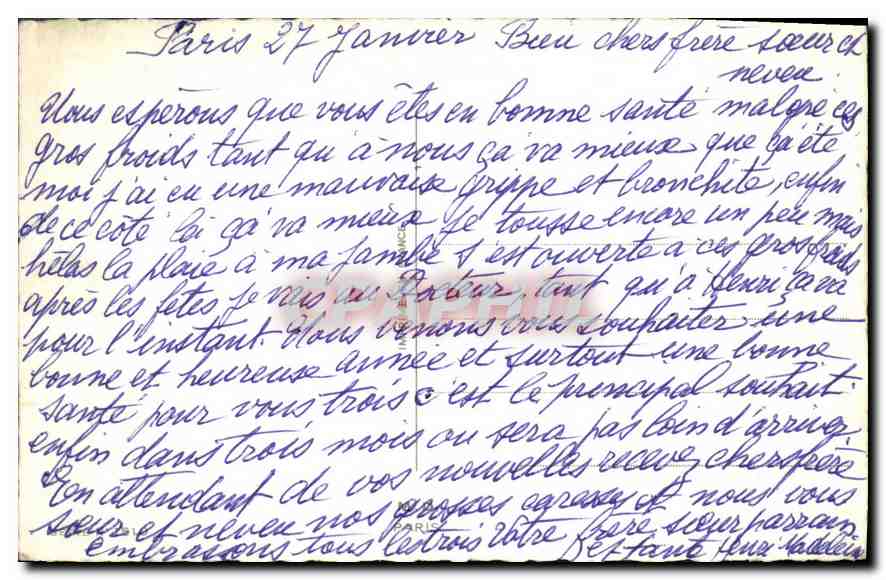 Paris 27 Janvier Bien chers frère sœur et
neveu
Nous espérons que vous êtes en bonne santé malgré ces
gros froids tant qu'à nous ça va mieux que ça été
moi j'ai eu une mauvaise grippe et bronchite, enfin
de ce côté là ça va mieux je tousse encore un peu mais
hélas la plaie à ma jambe s'est ouverte a ces gros froids
après les fêtes je vais au Docteur, tant qu'à Henri ça va
pour l'instant. Nous venons vous souhaiter une
bonne et heureuse année et surtout une bonne
santé pour vous trois c'est le principal souhait.
enfin dans trois mois on sera pas loin d'arriver
En attendant de vos nouvelles recevez chers frère
sœur et neveu nos grosses caresses et nous vous
embrassons tous les trois Votre frère sœur parrain
et tante Henri Madeleine
PARIS